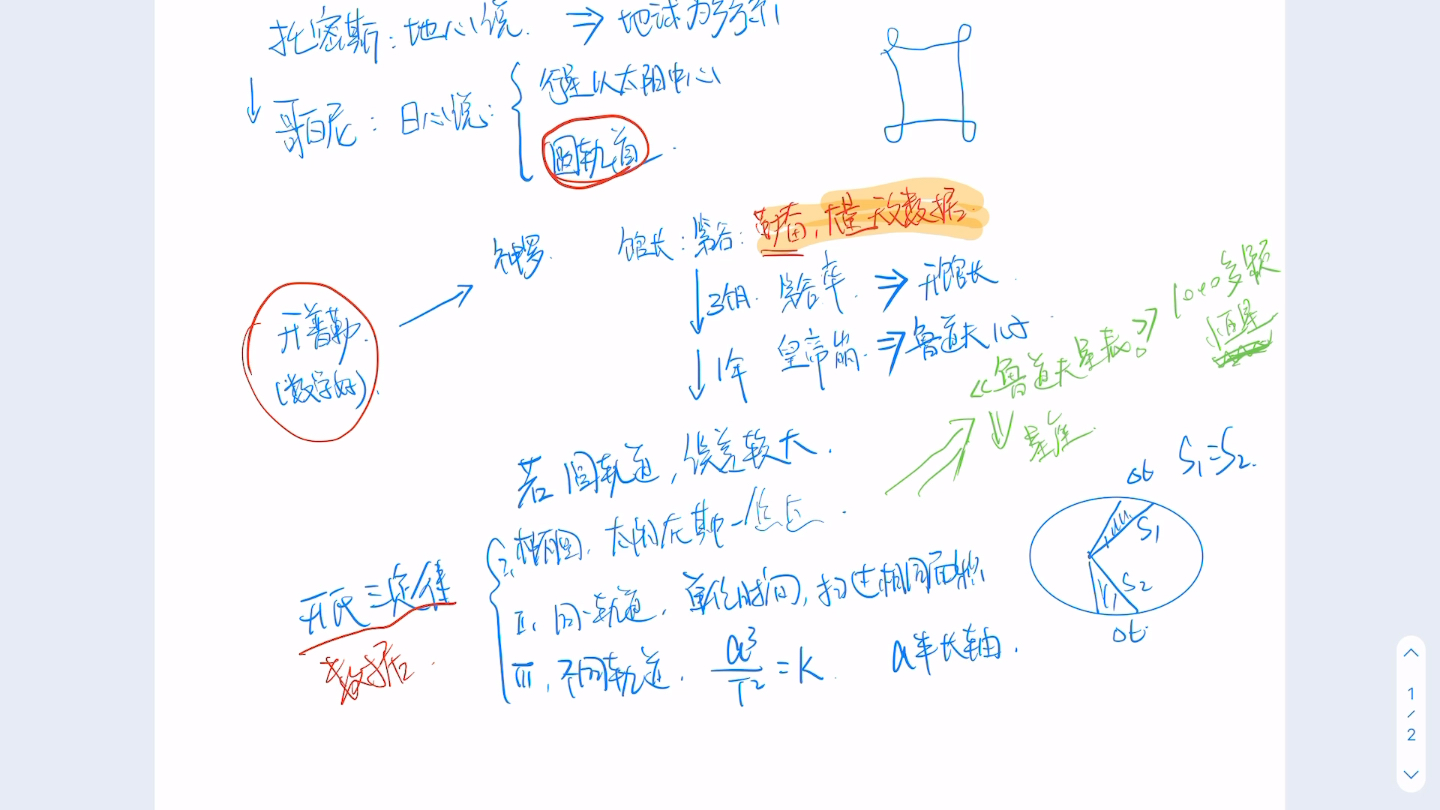 托密斯：地心说. ⇒ 地球为
↓ 哥白尼：日心说：
行星以太阳中心
圆轨道.
神罗. 馆长：第谷： 大量天文数据.
开普勒. (数学好).
↓3个月. 第谷卒. ⇒ 开馆长.
↓1年 皇帝崩. ⇒ 鲁道夫
《鲁道夫星表》⇒ 1000多颗恒星
⇓ 星座.
若圆轨道, 误差较大.
开氏三定律
数据.
I、椭圆, 太阳在其中一焦点.
II、同一轨道, 单位时间, 扫过相同面积
III、不同轨道. a³/T² = K. a半长轴.
Δt S₁=S₂.
S₁
S₂
Δt
1
/
2